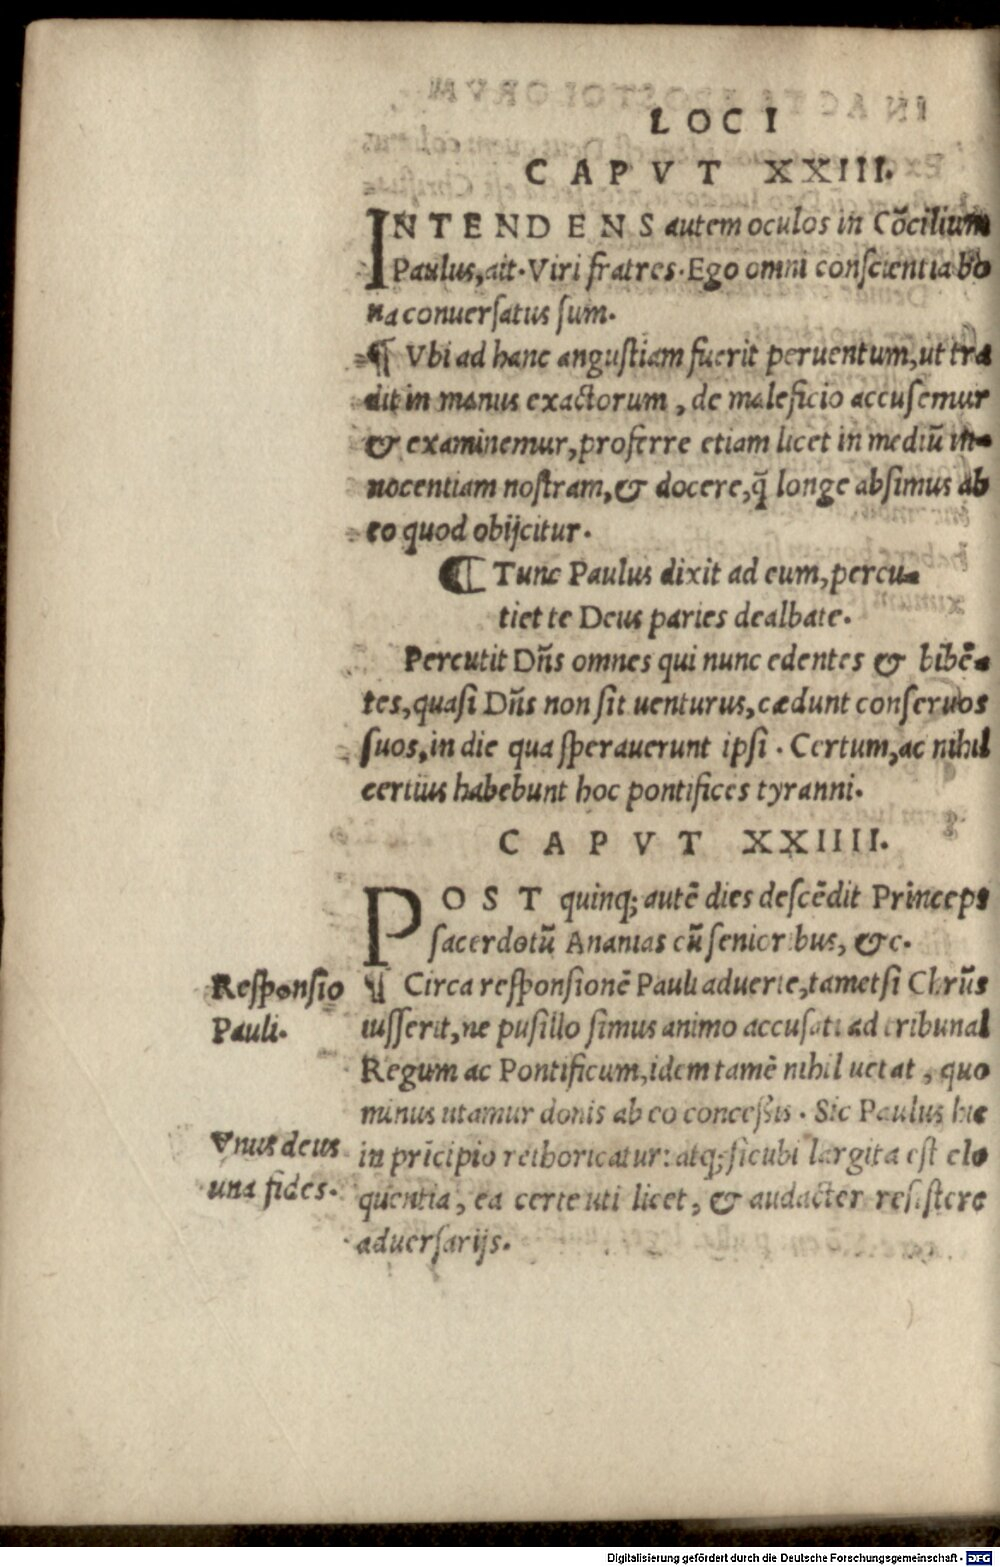 LOCI
CAPVT XXIII.
INTENDENS autem oculos in Cõcilium
Paulus, ait. Viri fratres. Ego omni conscientia bo
na conuersatus sum.
¶ Vbi ad hanc angustiam fuerit peruentum, ut tra
diti in manus exactorum, de maleficio accusemur
& examinemur, proferre etiam licet in mediũ in-
nocentiam nostram, & docere, q̃ longe absimus ab
eo quod obijcitur.
¶ Tunc Paulus dixit ad eum, percu-
tiet te Deus paries dealbate.
Percutit Dñs omnes qui nunc edentes & bibẽ-
tes, quasi Dñs non sit uenturus, cædunt conseruos
suos, in die qua sperauerunt ipsi. Certum, ac nihil
certius habebunt hoc pontifices tyranni.
CAPVT XXIIII.
POST quinq; autẽ dies descẽdit Princeps
sacerdotũ Ananias cũ senioribus, &c.
Responsio
Pauli.
¶ Circa responsionẽ Pauli aduerte, tametsi Chrũs
iusserit, ne pusillo simus animo accusati ad tribunal
Regum ac Pontificum, idem tamẽ nihil uetat, quo
minus utamur donis ab eo concessis. Sic Paulus hic
Vnus deus
una fides.
in prĩcipio rethoricatur: atq; sicubi largita est elo
quentia, ea certe uti licet, & audacter resistere
aduersarijs.
Digitalisierung gefördert durch die Deutsche Forschungsgemeinschaft - DFG